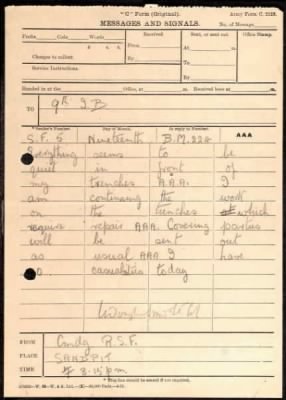 "C" Form (Original). Army Form C. 2123.
MESSAGES AND SIGNALS. No. of Message
Prefix Code Words Received Sent, or sent out Office Stamp.
£ s. d. From At m.
Charges to collect By To
Service Instructions. By
Handed in at the Office at m. Received here at m.
TO 9th I B
Sender's Number Day of Month. In reply to Number AAA
S.F. 5 Nineteenth B.M. 224
Everything seems to be
quiet in front of
my trenches A.A.A. I
am continuing the work
on the trenches which
require repair AAA Covering parties
will be sent out
as usual AAA I have
no casualties today
FROM Cmdg R.S.F.
PLACE SANDPIT
TIME 8.15pm
*This line should be erased if not required.